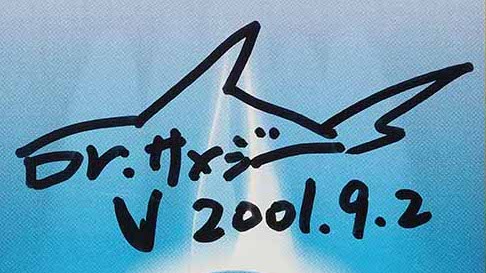 Dr.サメジー
V 2001.9.2